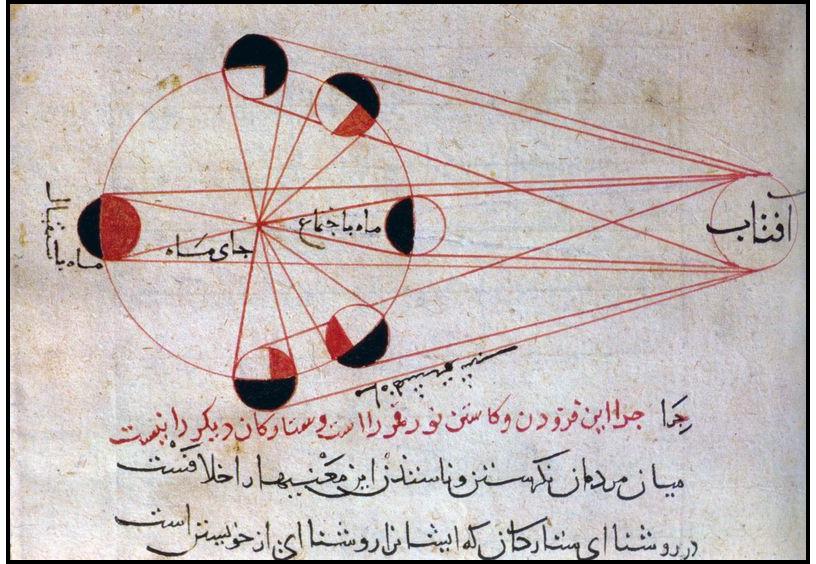 افتاب
ماه باجتماع
جای ماه
ماه باستقبال
چرا چرا این فزودن وکاستن نور قمر را است وستارکان دیکر را نیست
میان مردمان نکرستن و اندر این معنیها را خلافست
در روشنا ای ستارکان که ایشانرا روشنا ای از خویشتن است